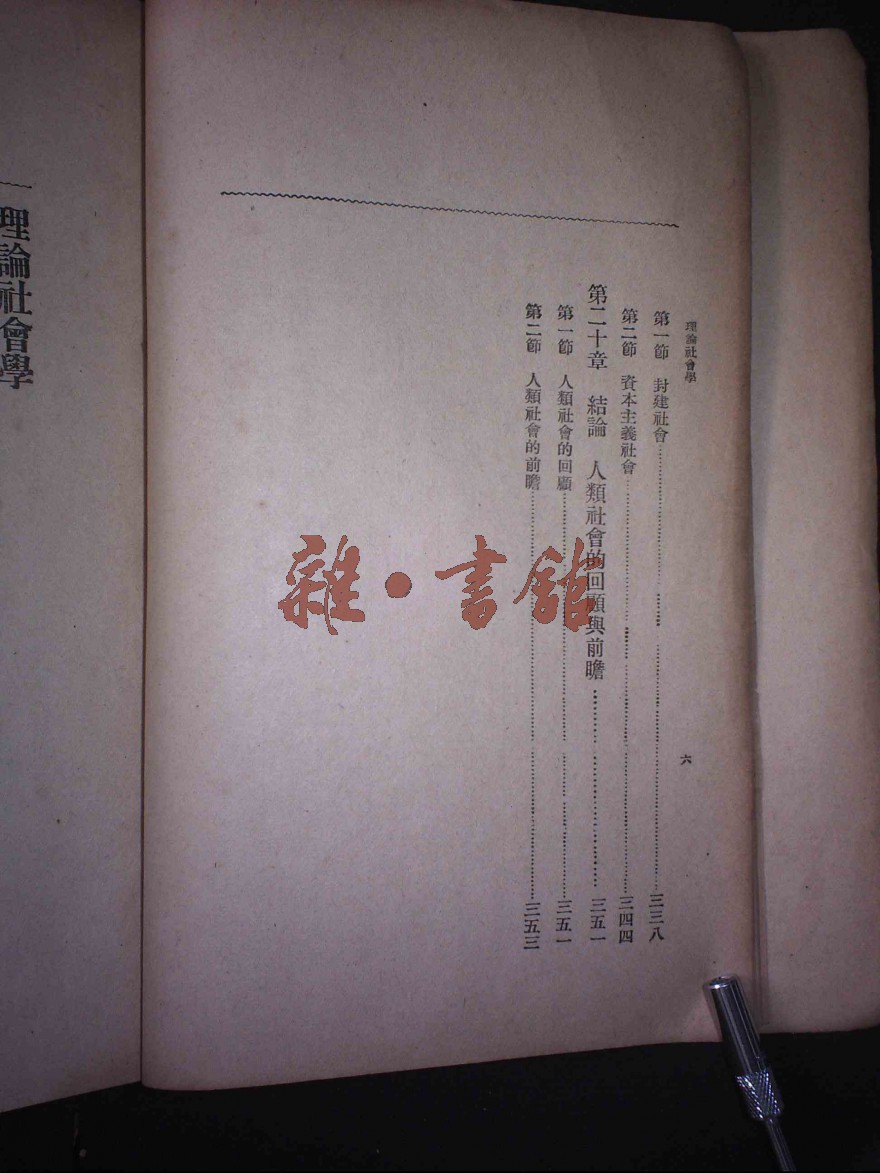 理論社會學
六
第一節　封建社會……三三八
第二節　資本主義社會……三四四
第二十章　結論　人類社會的回顧與前瞻……三五一
第一節　人類社會的回顧……三五一
第二節　人類社會的前瞻……三五三
雜·書館
理論社會學